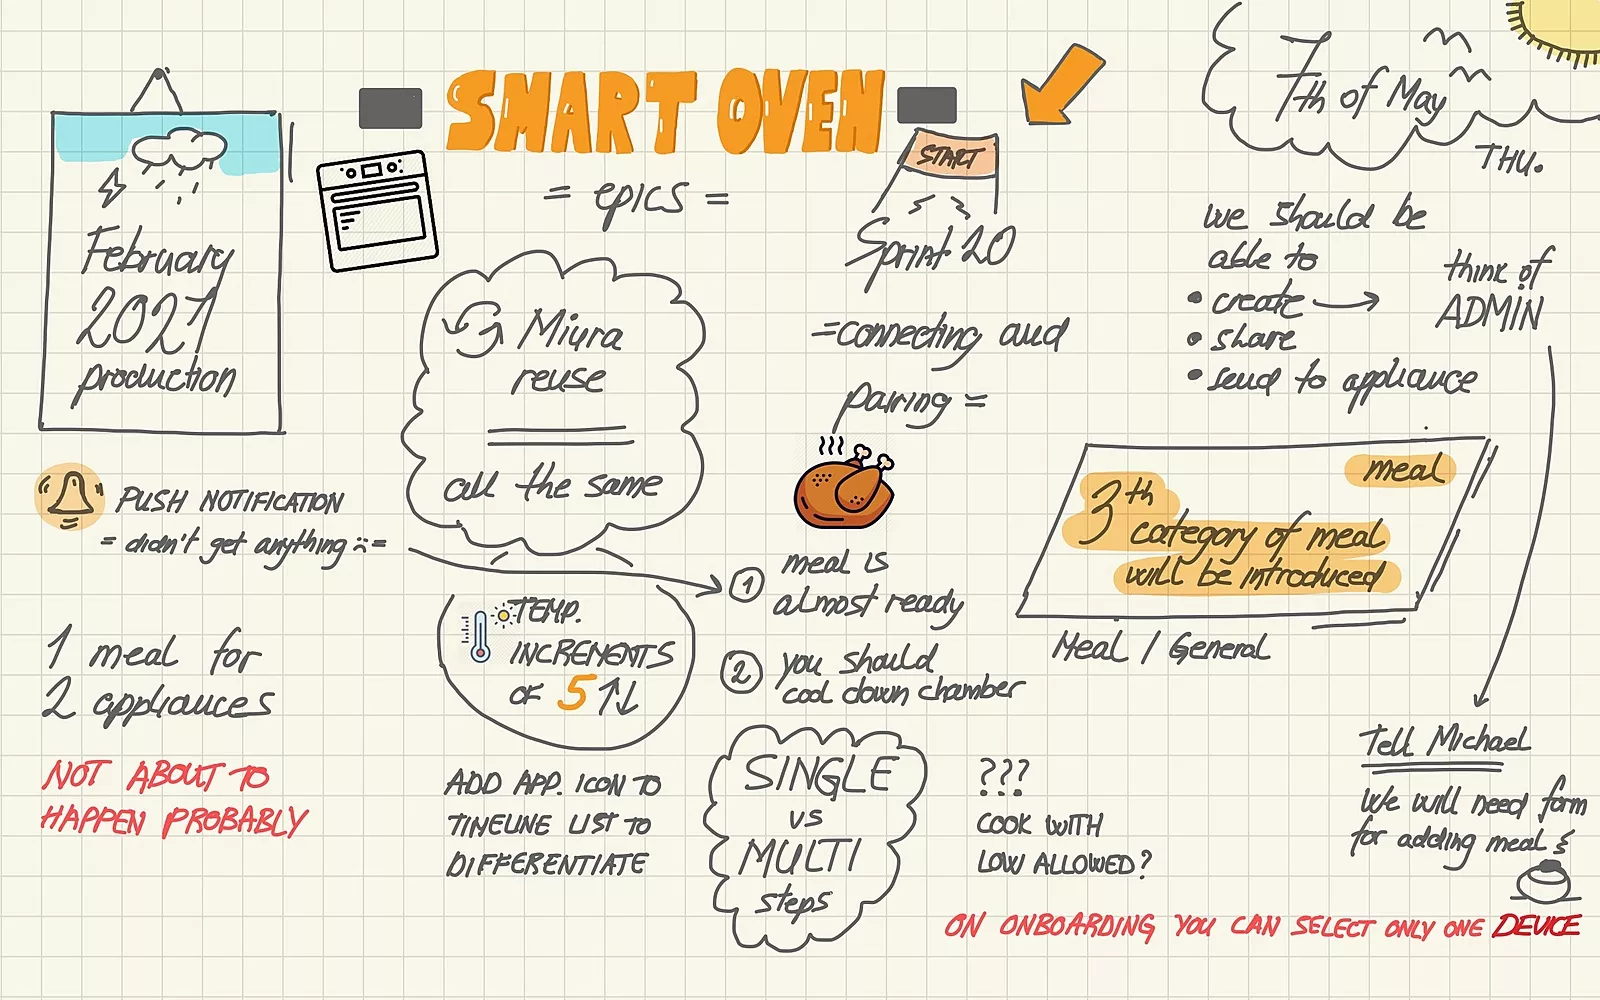 SMART OVEN
= epics =
February
2021
production
PUSH NOTIFICATION
= didn't get anything :(=
1 meal for
2 appliances
NOT ABOUT TO
HAPPEN PROBABLY
Miura
reuse
all the same
TEMP.
INCREMENTS
OF 5 ↑↓
ADD APP. ICON TO
TIMELINE LIST TO
DIFFERENTIATE
START
Sprint 20
=connecting and
pairing =
1 meal is
almost ready
2 you should
cool down chamber
SINGLE
vs
MULTI
steps
???
COOK WITH
LOW ALLOWED?
7th of May
THU.
we should be
able to
• create →
• share
• send to appliance
think of
ADMIN
meal
3th
category of meal
will be introduced
Meal / General
Tell Michael
We will need form
for adding meal
ON ONBOARDING YOU CAN SELECT ONLY ONE DEVICE